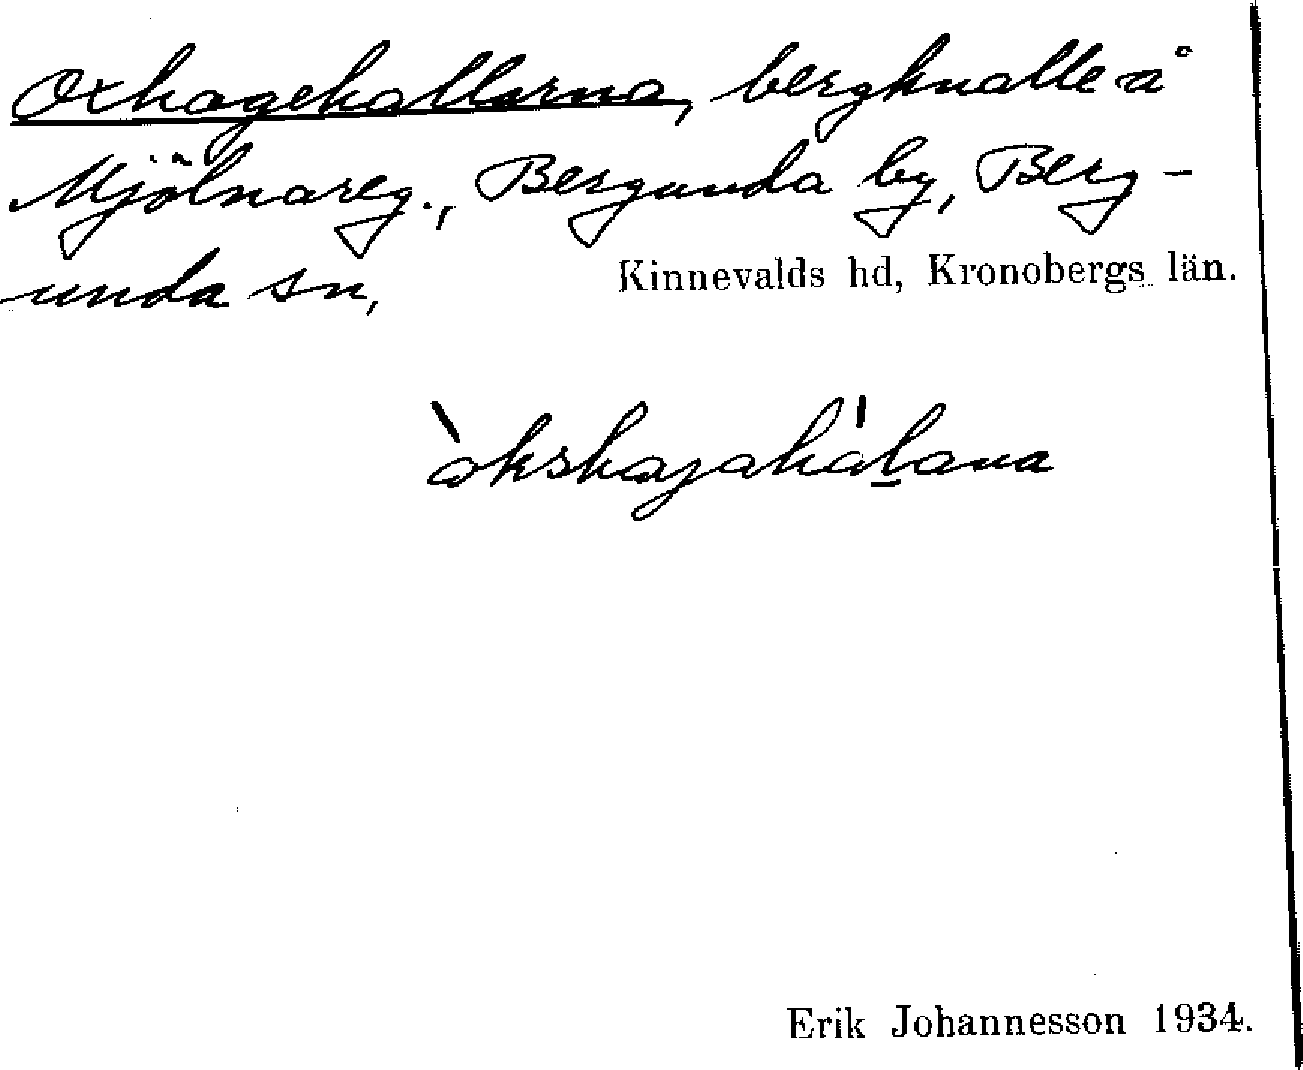 Oxhagehallarna, bergknalle å
Mjölnareg., Bergunda by, Berg-
unda sn,
Kinnevalds hd, Kronobergs län.
òkshagahálana
Erik Johannesson 1934.